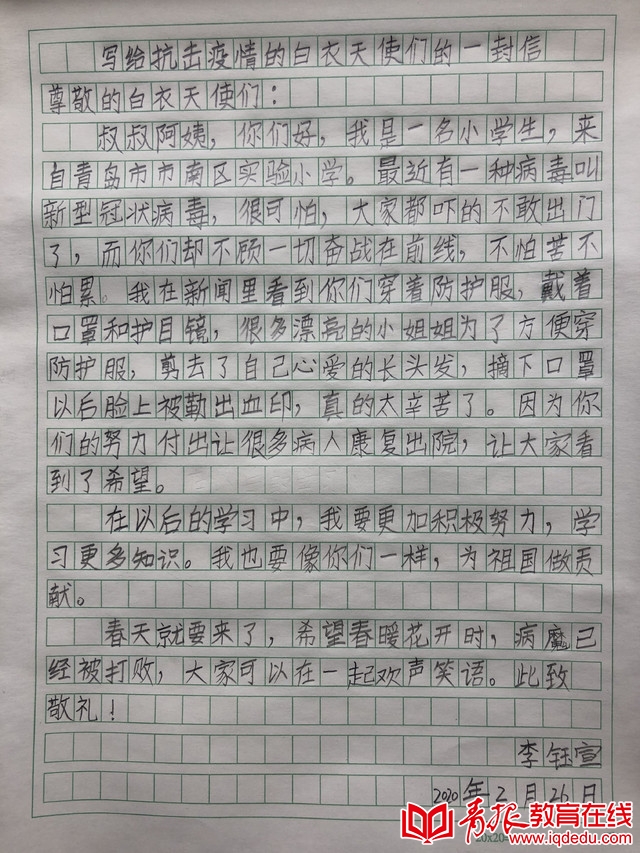 写给抗击疫情的白衣天使们的一封信
尊敬的白衣天使们：
叔叔阿姨，你们好，我是一名小学生，来
自青岛市市南区实验小学。最近有一种病毒叫
新型冠状病毒，很可怕，大家都吓的不敢出门
了，而你们却不顾一切奋战在前线，不怕苦不
怕累。我在新闻里看到你们穿着防护服，戴着
口罩和护目镜，很多漂亮的小姐姐为了方便穿
防护服，剪去了自己心爱的长头发，摘下口罩
以后脸上被勒出血印，真的太辛苦了。因为你
们的努力付出让很多病人康复出院，让大家看
到了希望。
在以后的学习中，我要更加积极努力，学
习更多知识。我也要像你们一样，为祖国做贡
献。
春天就要来了，希望春暖花开时，病魔已
经被打败，大家可以在一起欢声笑语。此致
敬礼！
李钰宣
2020年2月26日
青报教育在线
www.iqdedu.com